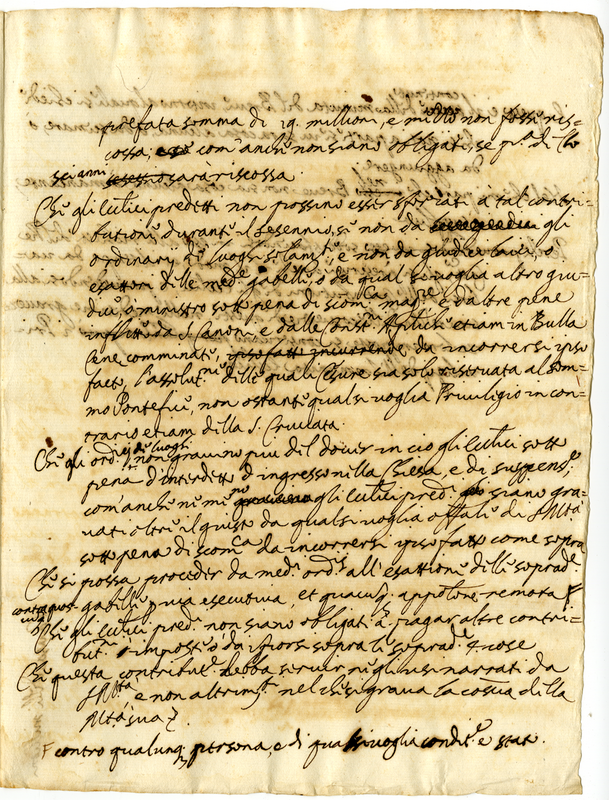 prefata somma di 19. millioni, e mezzo non fosse ris-
cossa; com'anche non siano obligati, se p.a di
sei anni
sarà riscossa.
Che gli Eccl.ci predetti non possino esser sforzati a tal contri-
butione durante il sessennio, se non da gli
ordinarij de' luoghi, e non da giudici laici, o
esattori delle med.e gabelle, o da qual si voglia altro giu-
dice, o ministro sotto pena di scom.ca mag.re e d'altre pene
inflitte da S. Canoni e dalle Const.ni Apliche etiam in Bulla
Cene comminate, da incorrersi ipso
facto, l'assolut.ne delle quali Censure sia solo riservata al som-
mo Pontefice, non ostante qual si voglia Privilegio in con-
trario etiam della S. Cruciata.
Che gli ord.rij de' luoghi non gravino più del dover in ciò gli Eccl.ci sotto
pena d'interdetto d'ingresso nella Chiesa, e di suspens.e,
com'anche ne meno gli Eccl.ci pred.i siano gra-
vati oltre il giusto da qual si voglia offitiale di S. Mtà
sotto pena di scom.ca da incorrersi ipso facto come sopra
Che si possa proceder da med.i ord.rij all'esattione delle soprad.e
gabelle via esecutiva, et quacumq. appellone remota F
Che gli Eccl.ci pred.i non siano obligati a pagar altre contri-
but.i o imposte da sopra le soprad.e 4 cose
Che questa contribut.e debba servir ne gli usi narrati da
S. Mtà e non altrim.ti nel che si grava la coscia della
Mtà sua
F contro qualunq. persona, e di qualsivoglia condit.e e stato.